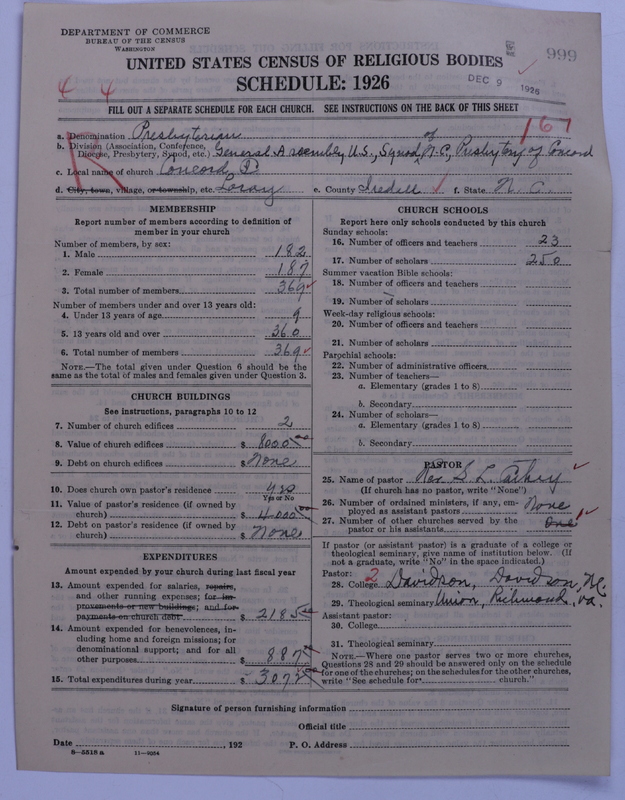 DEPARTMENT OF COMMERCE
BUREAU OF THE CENSUS
WASHINGTON
999
UNITED STATES CENSUS OF RELIGIOUS BODIES
SCHEDULE: 1926
DEC 9 1926
4 4
FILL OUT A SEPARATE SCHEDULE FOR EACH CHURCH. SEE INSTRUCTIONS ON THE BACK OF THIS SHEET
167
a. Denomination Presbyterian
b. Division (Association, Conference, Diocese, Presbytery, Synod, etc.) General Assembly U.S., Synod of N.C., Presbytery of Concord
c. Local name of church Concord
d. City, town, village, or township, etc. Loray e. County Iredell f. State N. C.
MEMBERSHIP
Report number of members according to definition of
member in your church
Number of members, by sex:
1. Male 182
2. Female 187
3. Total number of members 369
Number of members under and over 13 years old:
4. Under 13 years of age 9
5. 13 years old and over 360
6. Total number of members 369
NOTE.—The total given under Question 6 should be
same as the total of males and females given under Question 3.
CHURCH BUILDINGS
See instructions, paragraphs 10 to 12
7. Number of church edifices 2
8. Value of church edifices $ 8000 00
9. Debt on church edifices $ None
10. Does church own pastor's residence yes
Yes or No
11. Value of pastor's residence (if owned by
church) $ 4000 00
12. Debt on pastor's residence (if owned by
church) $ None
EXPENDITURES
Amount expended by church during last fiscal year
13. Amount expended for salaries, repairs,
and other running expenses; for im-
provements or new buildings; and for
payments on church debt $ 2185 00
14. Amount expended for benevolences, in-
cluding home and foreign missions; for
denominational support; and for all
other purposes $ 887
15. Total expenditures during year $ 3072 00
CHURCH SCHOOLS
Report here only schools conducted by this church
Sunday schools:
16. Number of officers and teachers 23
17. Number of scholars 250
Summer vacation Bible schools:
18. Number of officers and teachers
19. Number of scholars
Week-day religious schools:
20. Number of officers and teachers
21. Number of scholars
Parochial schools:
22. Number of administrative officers
23. Number of teachers—
a. Elementary (grades 1 to 8)
b. Secondary
24. Number of scholars—
a. Elementary (grades 1 to 8)
b. Secondary
PASTOR
25. Name of pastor Rev. S. L. Cathey
(If church has no pastor, write "None")
26. Number of ordained ministers, if any, em-
ployed as assistant pastors None
27. Number of other churches served by the
pastor or his assistants One 1
If pastor (or assistant pastor) is a graduate of a college or
theological seminary, give name of institution below. (If
not a graduate, write "No" in the space indicated.)
Pastor: 2
28. College Davidson, Davidson, N.C.
29. Theological seminary Union, Richmond, Va.
Assistant pastor:
30. College
31. Theological seminary
NOTE.—Where one pastor serves two or more churches,
Questions 28 and 29 should be answered only on the schedule
for one of the churches; on the schedules for the other churches,
write "See schedule for church."
Signature of person furnishing information
Official title
Date , 192 P. O. Address
8—5518 a 11—9034